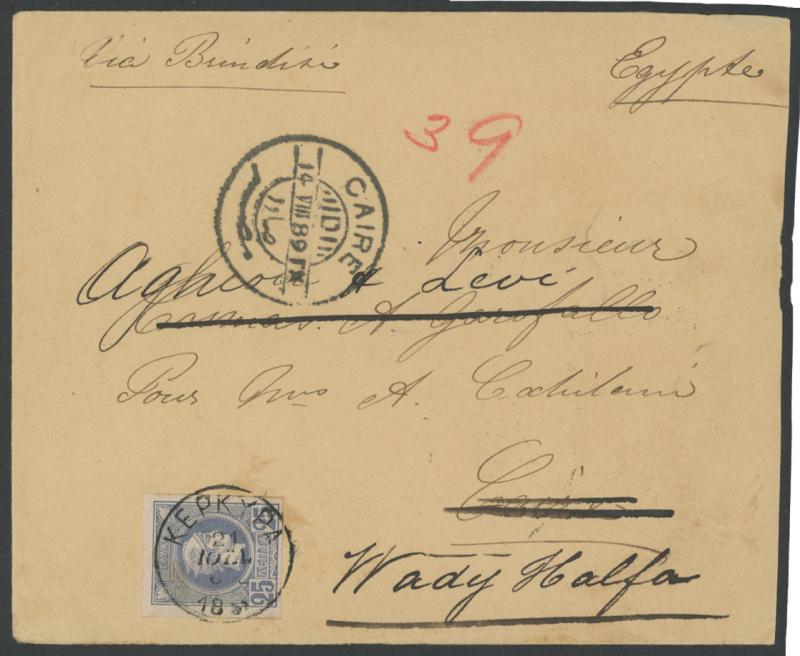 Via Brindisi
Egypte
39
CAIRE
14 VIII 89
Monsieur
& Levi
Cosmas A. Garofallo
Pour Mrs A.
Caire
Wady Halfa
ΚΕΡΚΥΡΑ
21
ΙΟΥΛ
18
25
25